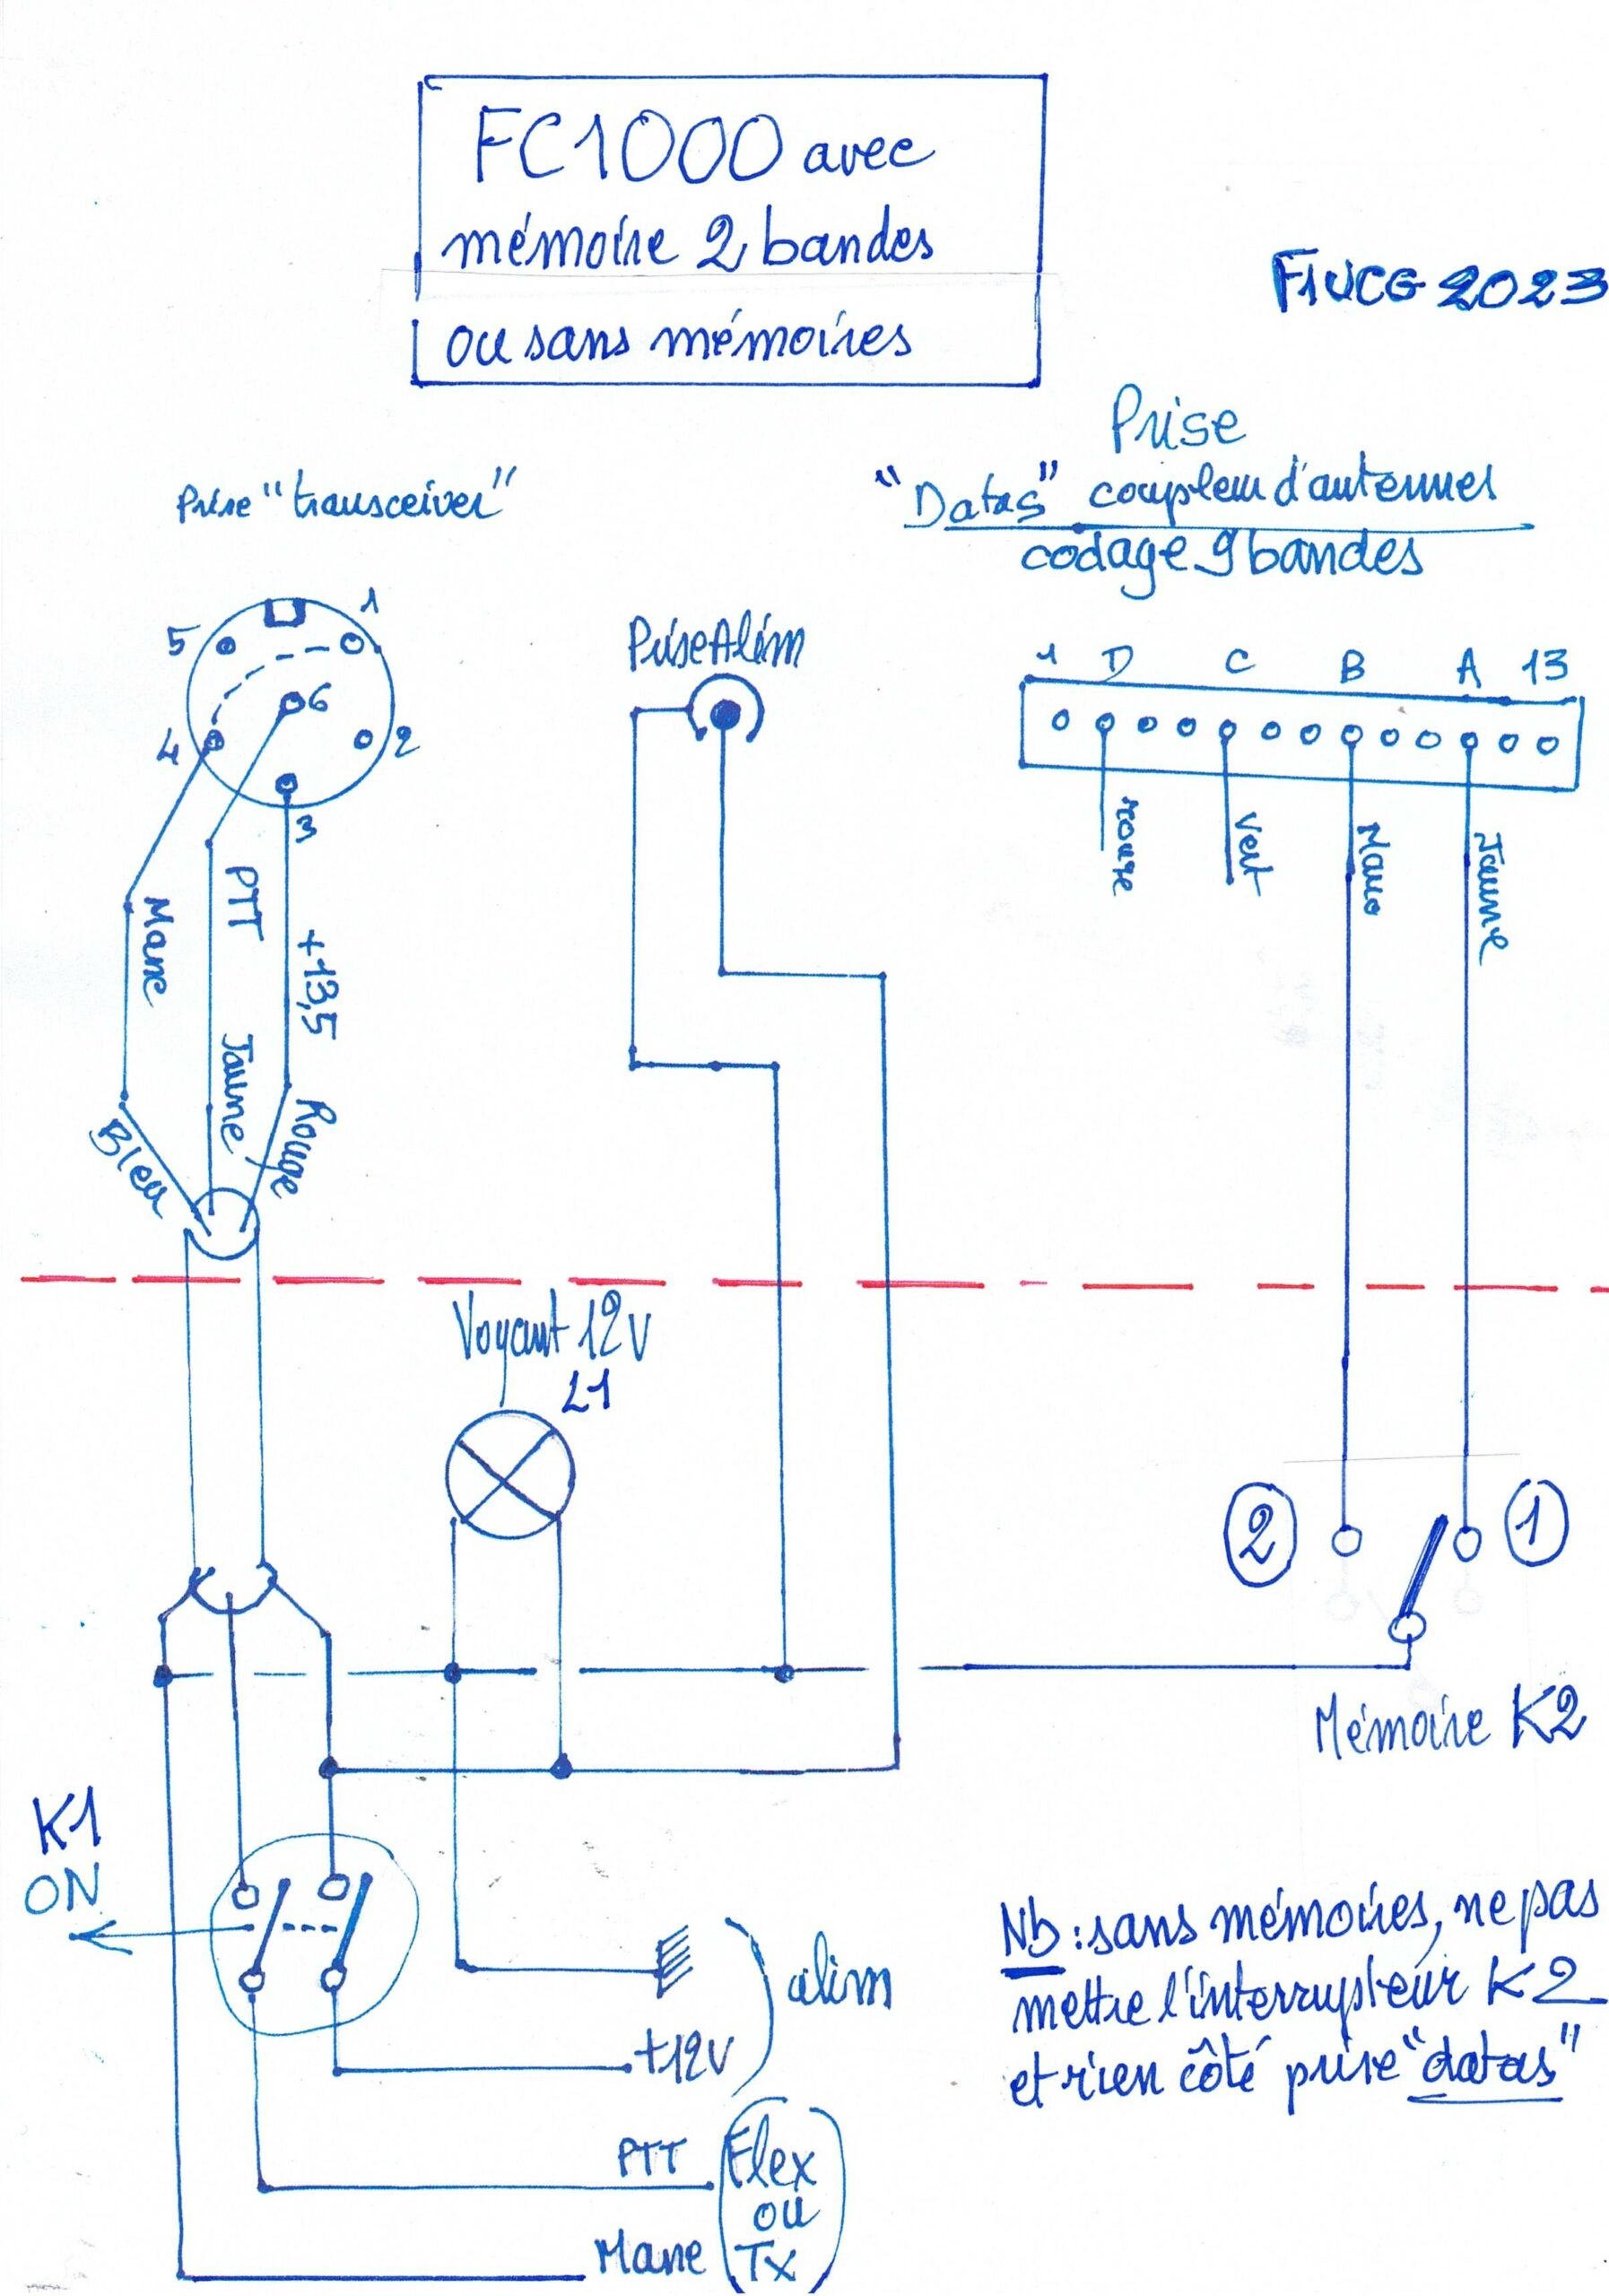 FC1000 avec
mémoire 2 bandes
ou sans mémoires
F1UCG 2023
Prise "transceiver"
Prise
"Datas" coupleur d'antennes
codage 9 bandes
5
1
6
4
2
3
Prise Alim
1 D C B A 13
rouge
Vert
Jaune
Masse
PTT
+13,5
Jaune
Bleu
Rouge
Voyant 12V
L1
2
1
Mémoire K2
K1
ON
alim
+12V
Nb : sans mémoires, ne pas
mettre l'interrupteur K2
et rien côté prise "datas"
PTT
Flex
ou
Tx
Masse